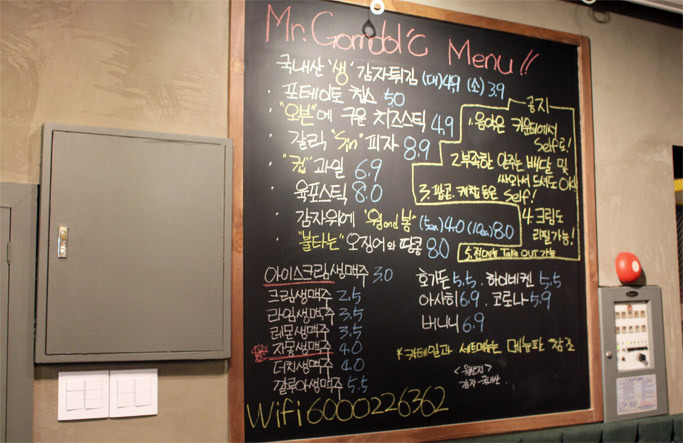 Mr. Gomdol's Menu!!
국내산 '생' 감자튀김 (대) 4.9 (소) 3.9
· 포테이토 칩스 5.0
· "오븐"에 구운 치즈스틱 4.9
· 갈릭 "Thin" 피자 8.9
· "컵" 과일 6.9
· 육포스틱 8.0
· 감자위에 '윙and봉' (5pcs) 4.0 (10pcs) 8.0
· "불타는" 오징어와 땅콩 8.0
공지
1. 음악은 카운터에서 Self로!
2. 부족한 안주는 배달 및 싸와서 드셔도 OK!
3. 팝콘, 케찹 등은 Self!
4. 크림도 리필가능!
5. 전메뉴 Take Out 가능
아이스크림생맥주 3.0
크림생맥주 2.5
라임생맥주 3.5
레몬생맥주 3.5
자몽생맥주 4.0
더치생맥주 4.0
깔루아생맥주 5.5
호가든 5.5 · 하이네켄 5.5
아사히 6.9 · 코로나 5.9
버니니 6.9
* 칵테일과 세트메뉴는 메뉴판 참조
<원산지>
감자-국내산
Wifi 6000226362